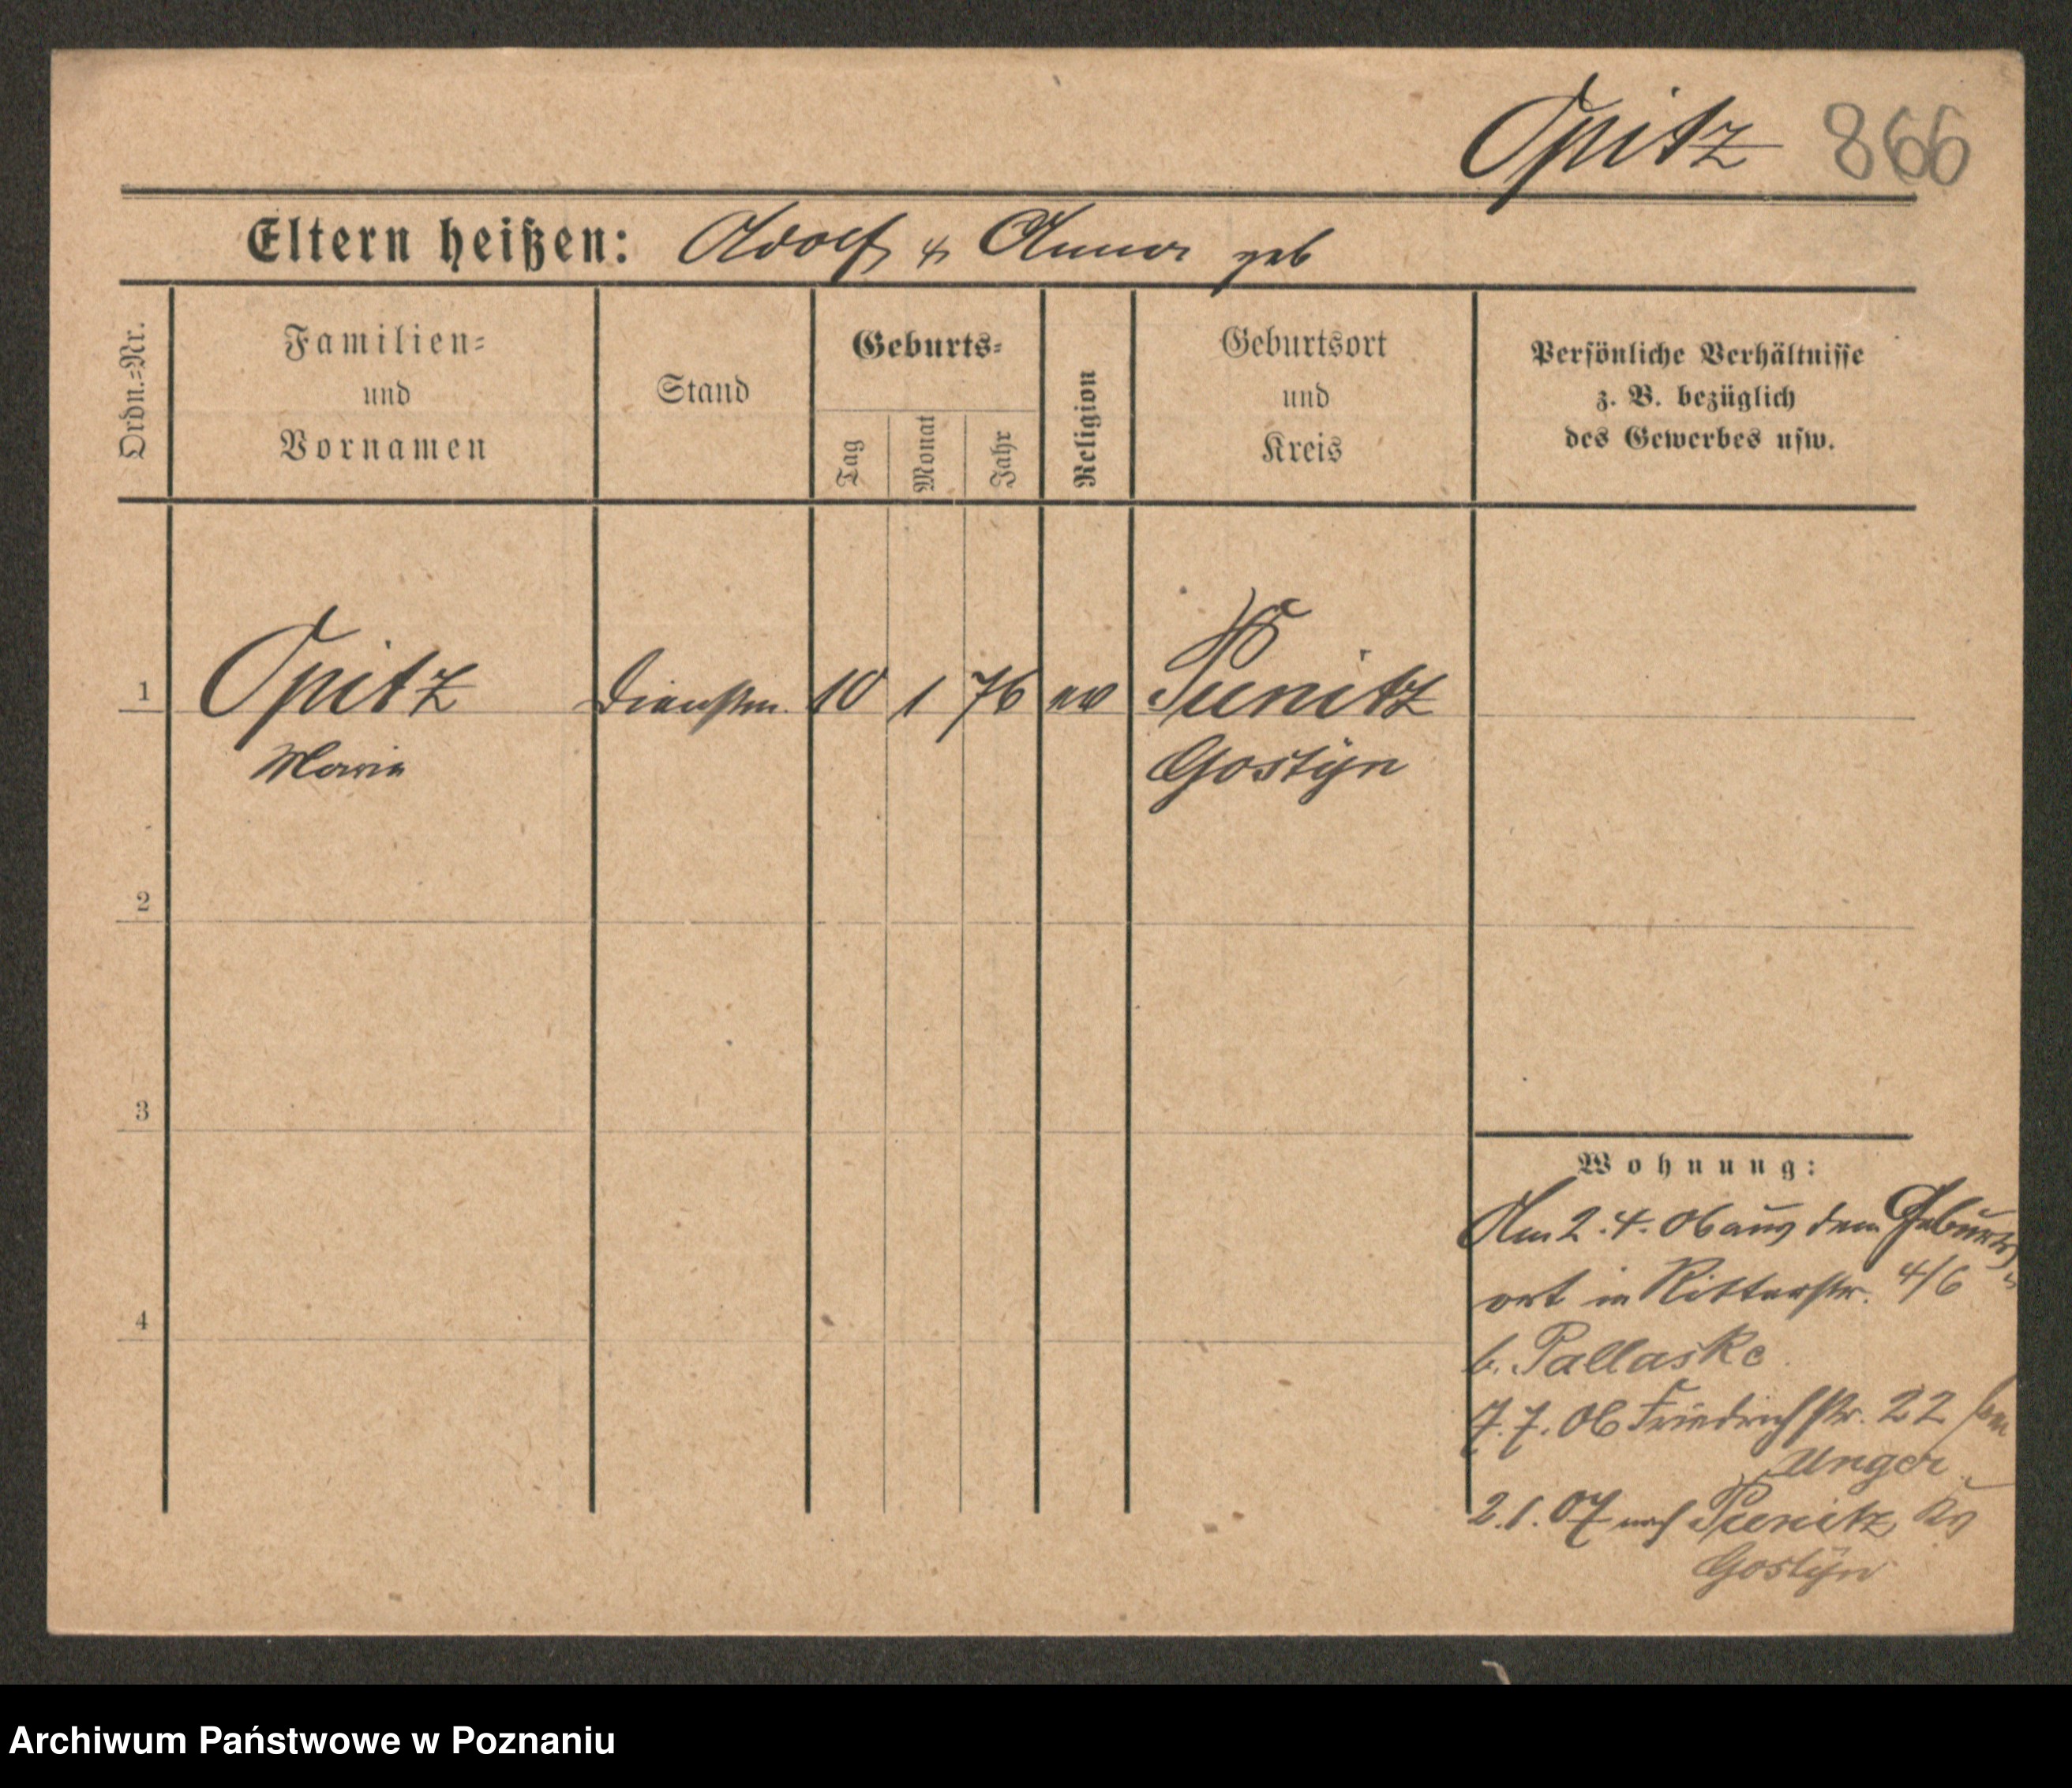 Opitz 866
Eltern heißen: Adolf & Anna geb
Ordn.=Nr.
Familien=
und
Vornamen
Stand
Geburts=
Tag
Monat
Jahr
Religion
Geburtsort
und
Kreis
Persönliche Verhältnisse
z. B. bezüglich
des Gewerbes usw.
1 Opitz Dienstm. 10 1 76 ev Punitz
Maria Gostyn
2
3
4
Wohnung:
Am 2.4.06 aus dem Geburts
ort in Ritterstr. 4/6
b. Pallaske
7.7.06 Friedrichstr. 22 bei
Unger
2.1.07 nach Punitz, Krs
Gostyn
Archiwum Państwowe w Poznaniu